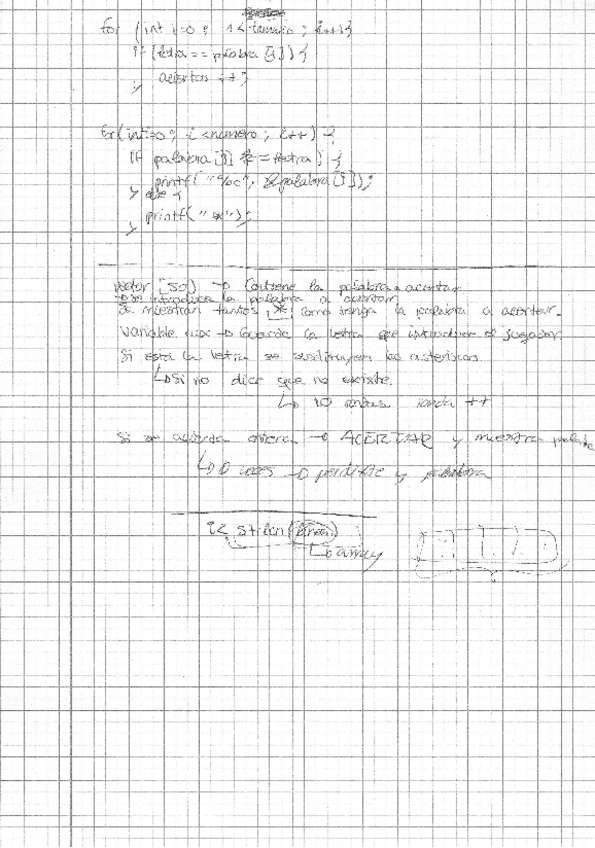 for (int i=0 ; i< tamaño ; i++){
if (letra == palabra [i]) {
aciertos ++;
}
for(int=0 ; i <numero ; i++) {
if palabra[i] == letra) {
printf("%c", &palabra[i]);
} else {
printf("*");
}
vector [50] → Contiene la palabra a acertar
→ se introduce la palabra a acertar
Se muestran tantos * como tenga la palabra a acertar.
Variable aux → Guarda la letra que introduce el jugador.
Si está la letra se sustituyen los asteriscos.
↳ Si no dice que no existe.
↳ 10 ronda ++
Si se acierta → ACERTAR y muestra
↳ 0 veces → perdiste y palabra
i< strlen (
↳ array